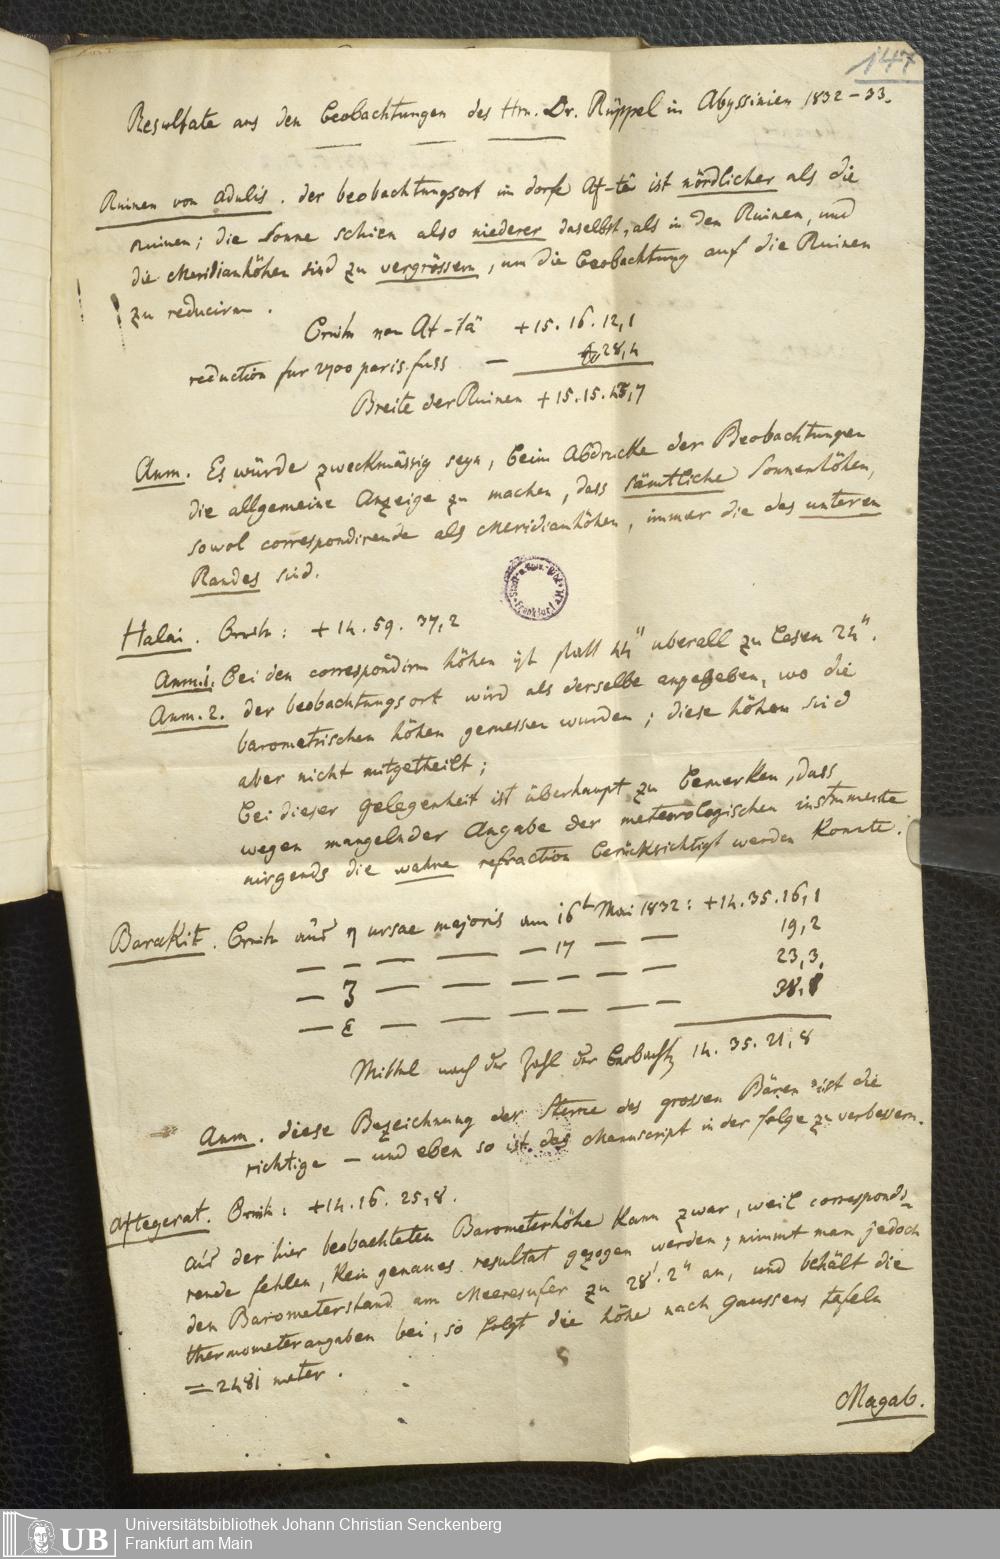 147
Resultate aus den Beobachtungen des Hrn. Dr. Rüppel in Abyssinien 1832–33.
Ruinen von Adulis. der beobachtungsort im dorfe Af-tê ist nördlicher als die
ruinen; die Sonne schien also niederer daselbst, als in den Ruinen, und
die Meridianhöhen sind zu vergrössern, um die Beobachtung auf die Ruinen
zu reduciren.
Breite von Af-tâ + 15. 16. 12,1
reduction fur 2700 paris. fuss — 28,4
Breite der Ruinen + 15. 15. 43,7
Anm. Es würde zweckmässig seyn, beim Abdrucke der Beobachtungen
die allgemeine Anzeige zu machen, dass sämtliche Sonnenhöhen,
sowol correspondirende als Meridianhöhen, immer die des unteren
Randes sind.
Stadt- u. Univ.-Bibl. Frankfurt a/M.
Halai. Breite: + 14. 59. 37,2
Anm. 1. Bei den correspondirn höhen ist statt 44" uberall zu lesen 24".
Anm. 2. der beobachtungsort wird als derselbe angegeben, wo die
barometrischen höhen gemessen wurden; diese höhen sind
aber nicht mitgetheilt;
bei dieser gelegenheit ist überhaupt zu bemerken, dass
wegen mangelnder Angabe der meteorologischen instrumente
nirgends die wahre refraction berücksichtigt werden konnte.
Barakit. Breite aus η ursae majoris am 16t Mai 1832: + 14. 35. 16,1
— — — — — 17 — — 19,2
— ζ — — — — — — 23,3
— ε — — — — — — 38,8
Mittel nach der Zahl der Beobachtg 14. 35. 21,8
Anm. diese Bezeichnung der Sterne des grossen Bären ist die
richtige — und eben so ist das Manuscript in der folge zu verbessern.
Ategerat. Breite: + 14. 16. 25,8.
Aus der hier beobachteten Barometerhöhe kann zwar, weil correspondi-
rende fehlen, kein genaues resultat gezogen werden; nimmt man jedoch
den Barometerstand am Meeresufer zu 28'. 2" an, und behält die
thermometerangaben bei, so folgt die höhe nach Gaussens tafeln
= 2481 meter.
Magab.
UB
Universitätsbibliothek Johann Christian Senckenberg
Frankfurt am Main